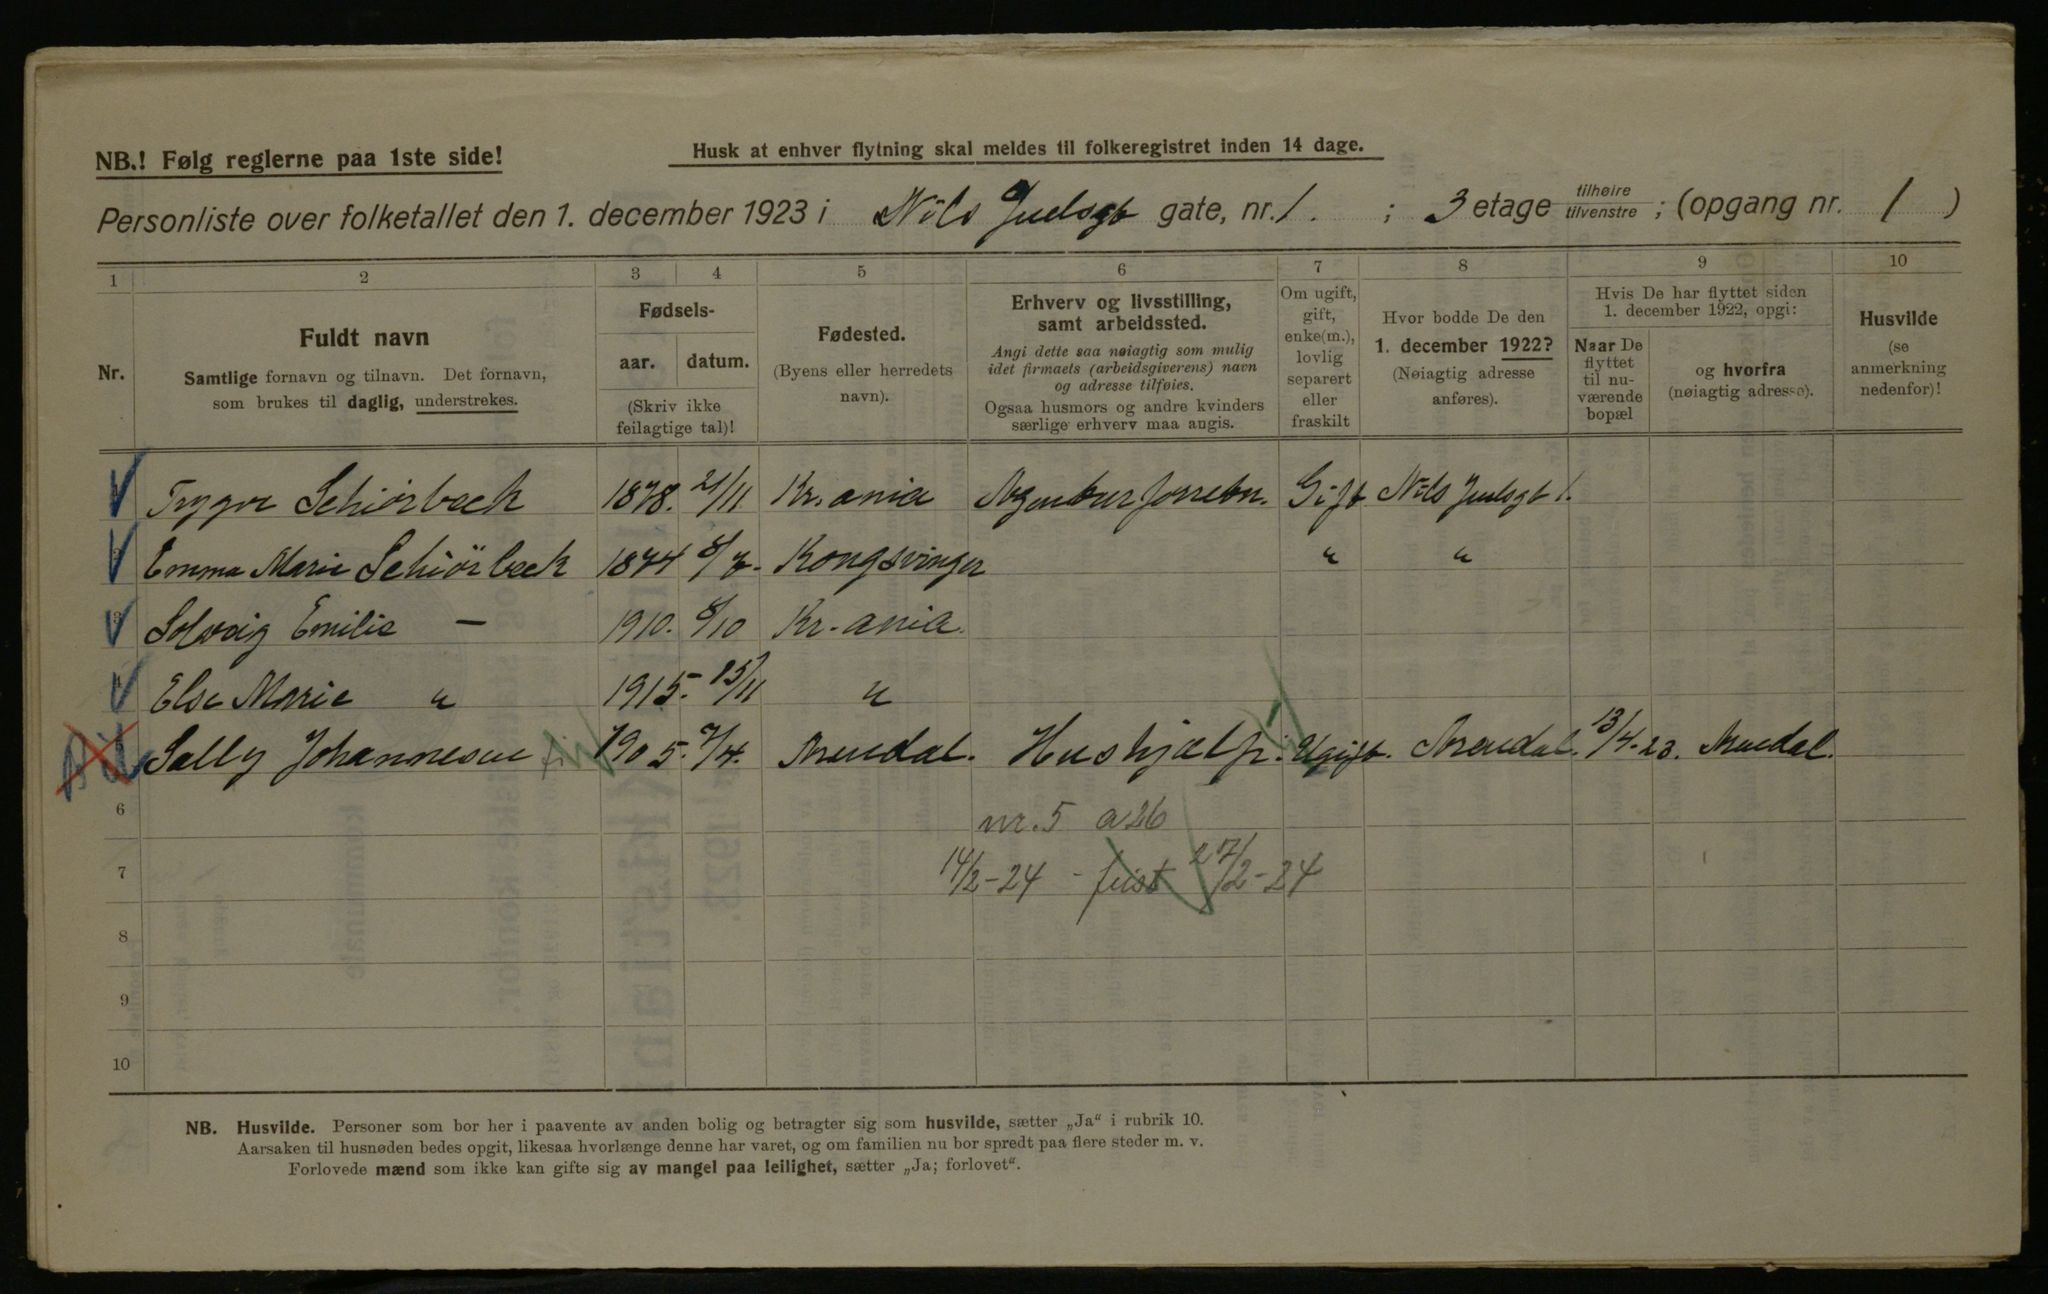 NB.! Følg reglerne paa 1ste side!
Husk at enhver flytning skal meldes til folkeregistret inden 14 dage.
Personliste over folketallet den 1. december 1923 i Nils Juelsgt gate, nr. 1. ; 3 etage tilhøire tilvenstre ; (opgang nr. 1 )
1 2 3 4 5 6 7 8 9 10
Nr.
Fuldt navn
Samtlige fornavn og tilnavn. Det fornavn,
som brukes til daglig, understrekes.
Fødsels-
aar. datum.
(Skriv ikke
feilagtige tal)!
Fødested.
(Byens eller herredets
navn).
Erhverv og livsstilling,
samt arbeidssted.
Angi dette saa nøiagtig som mulig
idet firmaets (arbeidsgiverens) navn
og adresse tilføies.
Ogsaa husmors og andre kvinders
særlige erhverv maa angis.
Om ugift,
gift,
enke(m.),
lovlig
separert
eller
fraskilt
Hvor bodde De den
1. december 1922?
(Nøiagtig adresse
anføres).
Hvis De har flyttet siden
1. december 1922, opgi:
Naar De
flyttet
til nu-
værende
bopæl
og hvorfra
(nøiagtig adresse).
Husvilde
(se
anmerkning
nedenfor)!
Trygve Schiørbeck 1878. 21/11 Kr.ania Agenturforretn. Gift Nils Juelsgt 1.
Emma Marie Schiörbeck 1874 Kongsvinger " "
Solveig Emilie — 1910. 8/10 Kr.ania
Else Marie " 1915. 15/11 "
Sally Johannesen 1905. 7/4. Arendal. Hushjælp. Ugift. Arendal. 13/4-23. Arendal.
6 nr. 5 a26
7 14/2-24 - 27/2-24
8
9
10
NB. Husvilde. Personer som bor her i paavente av anden bolig og betragter sig som husvilde, sætter „Ja“ i rubrik 10.
Aarsaken til husnøden bedes opgit, likesaa hvorlænge denne har varet, og om familien nu bor spredt paa flere steder m. v.
Forlovede mænd som ikke kan gifte sig av mangel paa leilighet, sætter „Ja; forlovet“.